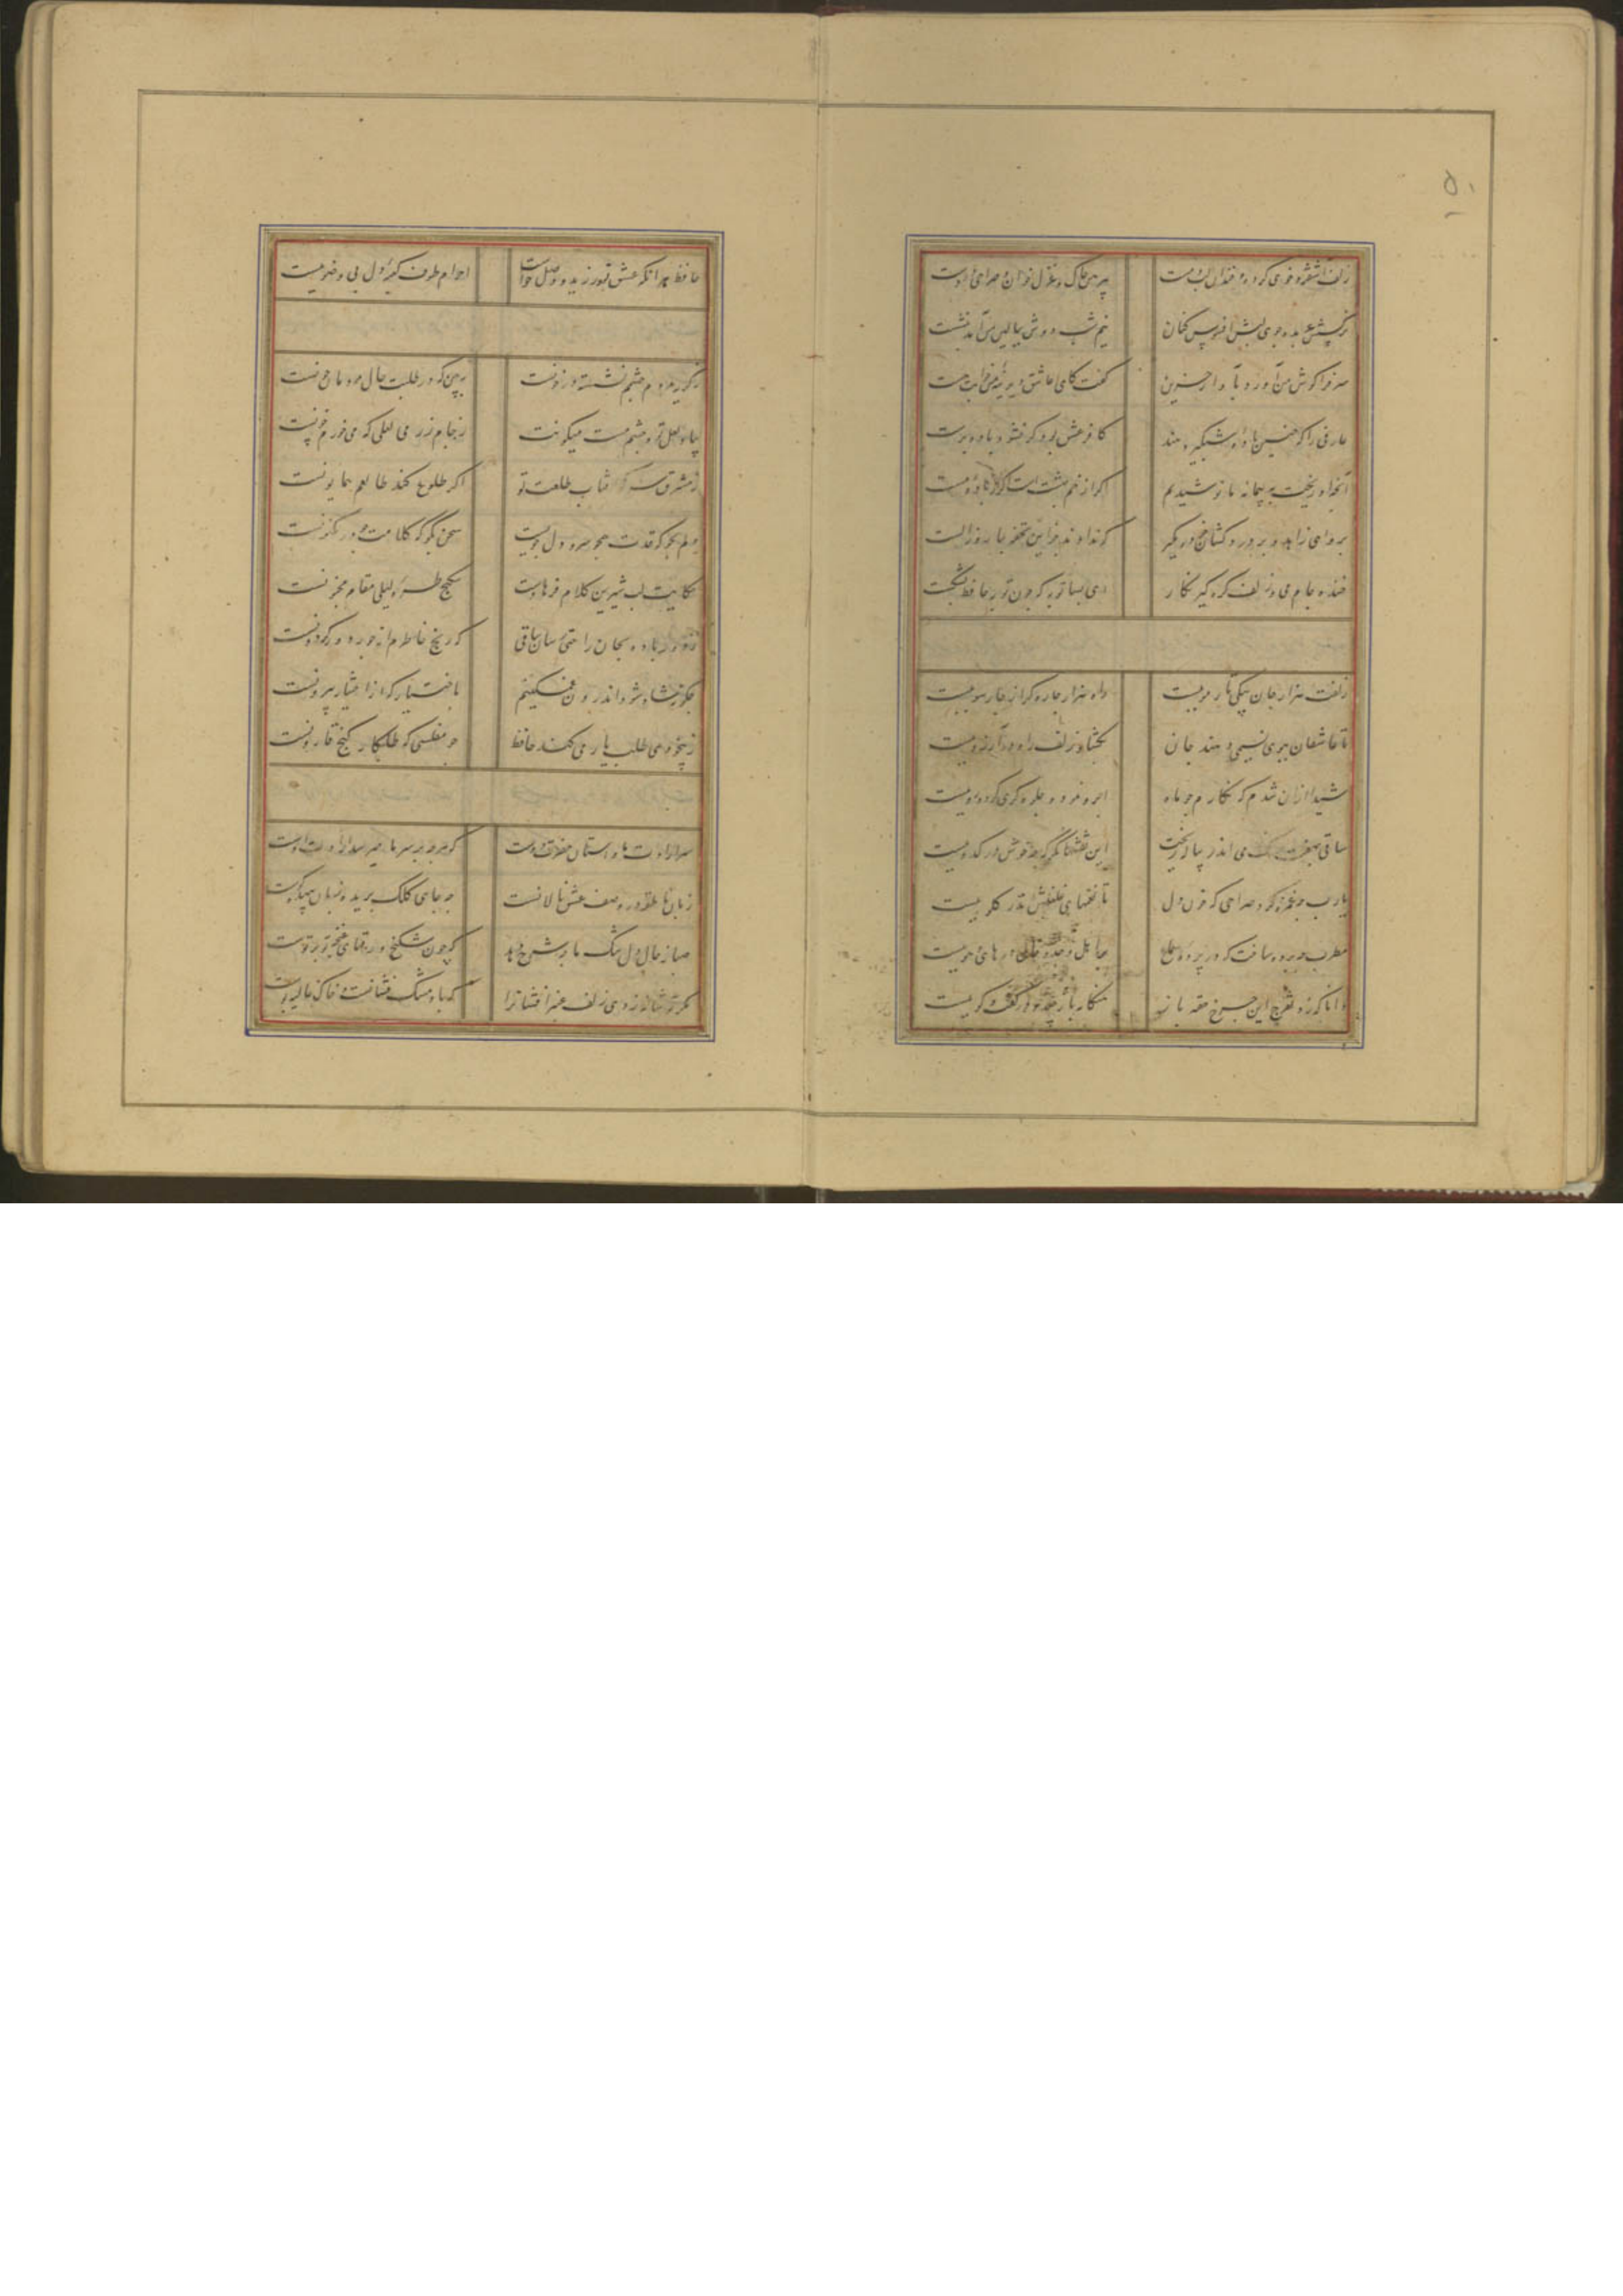 ۵۱
زلف آشفته و خوی کرده و خندان لب و مست
پیرهن چاک و غزل خوان و صراحی در دست
نرگسش عربده جوی لبش افسوس کنان
نیم شب دوش ببالین من آمد بنشست
سر فرا گوش من آورد بآواز حزین
گفت کای عاشق دیرینه من خوابت هست
عارفی را که چنین باده شبگیر دهند
کافر عشق بود گر نشود باده پرست
آنچه او ریخت به پیمانه ما نوشیدیم
اگر از خمر بهشت است وگر باده مست
برو ای زاهد و بر درد کشان خرده مگیر
که ندادند جز این تحفه بما روز الست
خنده جام می و زلف گره گیر نگار
ای بسا توبه که چون توبه حافظ بشکست
زلفت هزار جان بیکی تار مو ببست
راه هزار چاره گر از چار سو ببست
تا عاشقان ببوی نسیمی دهند جان
بگشاد زلف راه در آرزو ببست
شیدا از آن شدم که نگارم چو ماه
ابرو نمود و جلوه گری کرد و رو ببست
ساقی بچند رنگ می اندر پیاله ریخت
این نقشها نگر که چه خوش در کدو ببست
یارب چه غمزه کرد صراحی که خون دل
با نغمهای قلقلش اندر گلو ببست
مطرب چه پرده ساخت که در پرده سماع
بر اهل وجد و حال در های و هو ببست
دانا که زد تفرج این چرخ حقه باز
هنگامه باز چید و در گفت و گو ببست
حافظ هر آنکه عشق نورزید و وصل خواست
احرام طوف کعبه دل بی وضو ببست
ز گریه مردم چشمم نشسته در خونست
ببین که در طلبت حال مردمان چونست
بیاد لعل تو و چشم مست میگونت
ز جام زر می لعلی که می خورم خونست
ز مشرق سر کو آفتاب طلعت تو
اگر طلوع کند طالعم همایونست
دلم بجو که قدت همچو سرو دل جویست
سخن بگو که کلامت موزونست
حکایت لب شیرین کلام فرهادست
شکنج طره لیلی مقام مجنونست
ز دور باده بجان راحتی رسان ساقی
که رنج خاطرم از جور دور گردونست
چگونه شاد شود اندرون غمگینم
باختیار که از اختیار بیرونست
ز بیخودی طلب یار می کند حافظ
چو مفلسی که طلبکار گنج قارونست
سر ارادت ما و آستان حضرت دوست
که هر چه بر سر ما میرسد ارادت اوست
زبان ناطقه در وصف عشق نالانست
چه جای کلک بریده زبان بیهده گوست
صبا ز حال دل تنگ ما چه شرح دهد
که چون شکنج ورقهای غنچه تو بر توست
مگر تو شانه زدی زلف عنبر افشان را
که باد مشک فشانست و خاک عالیه بوست